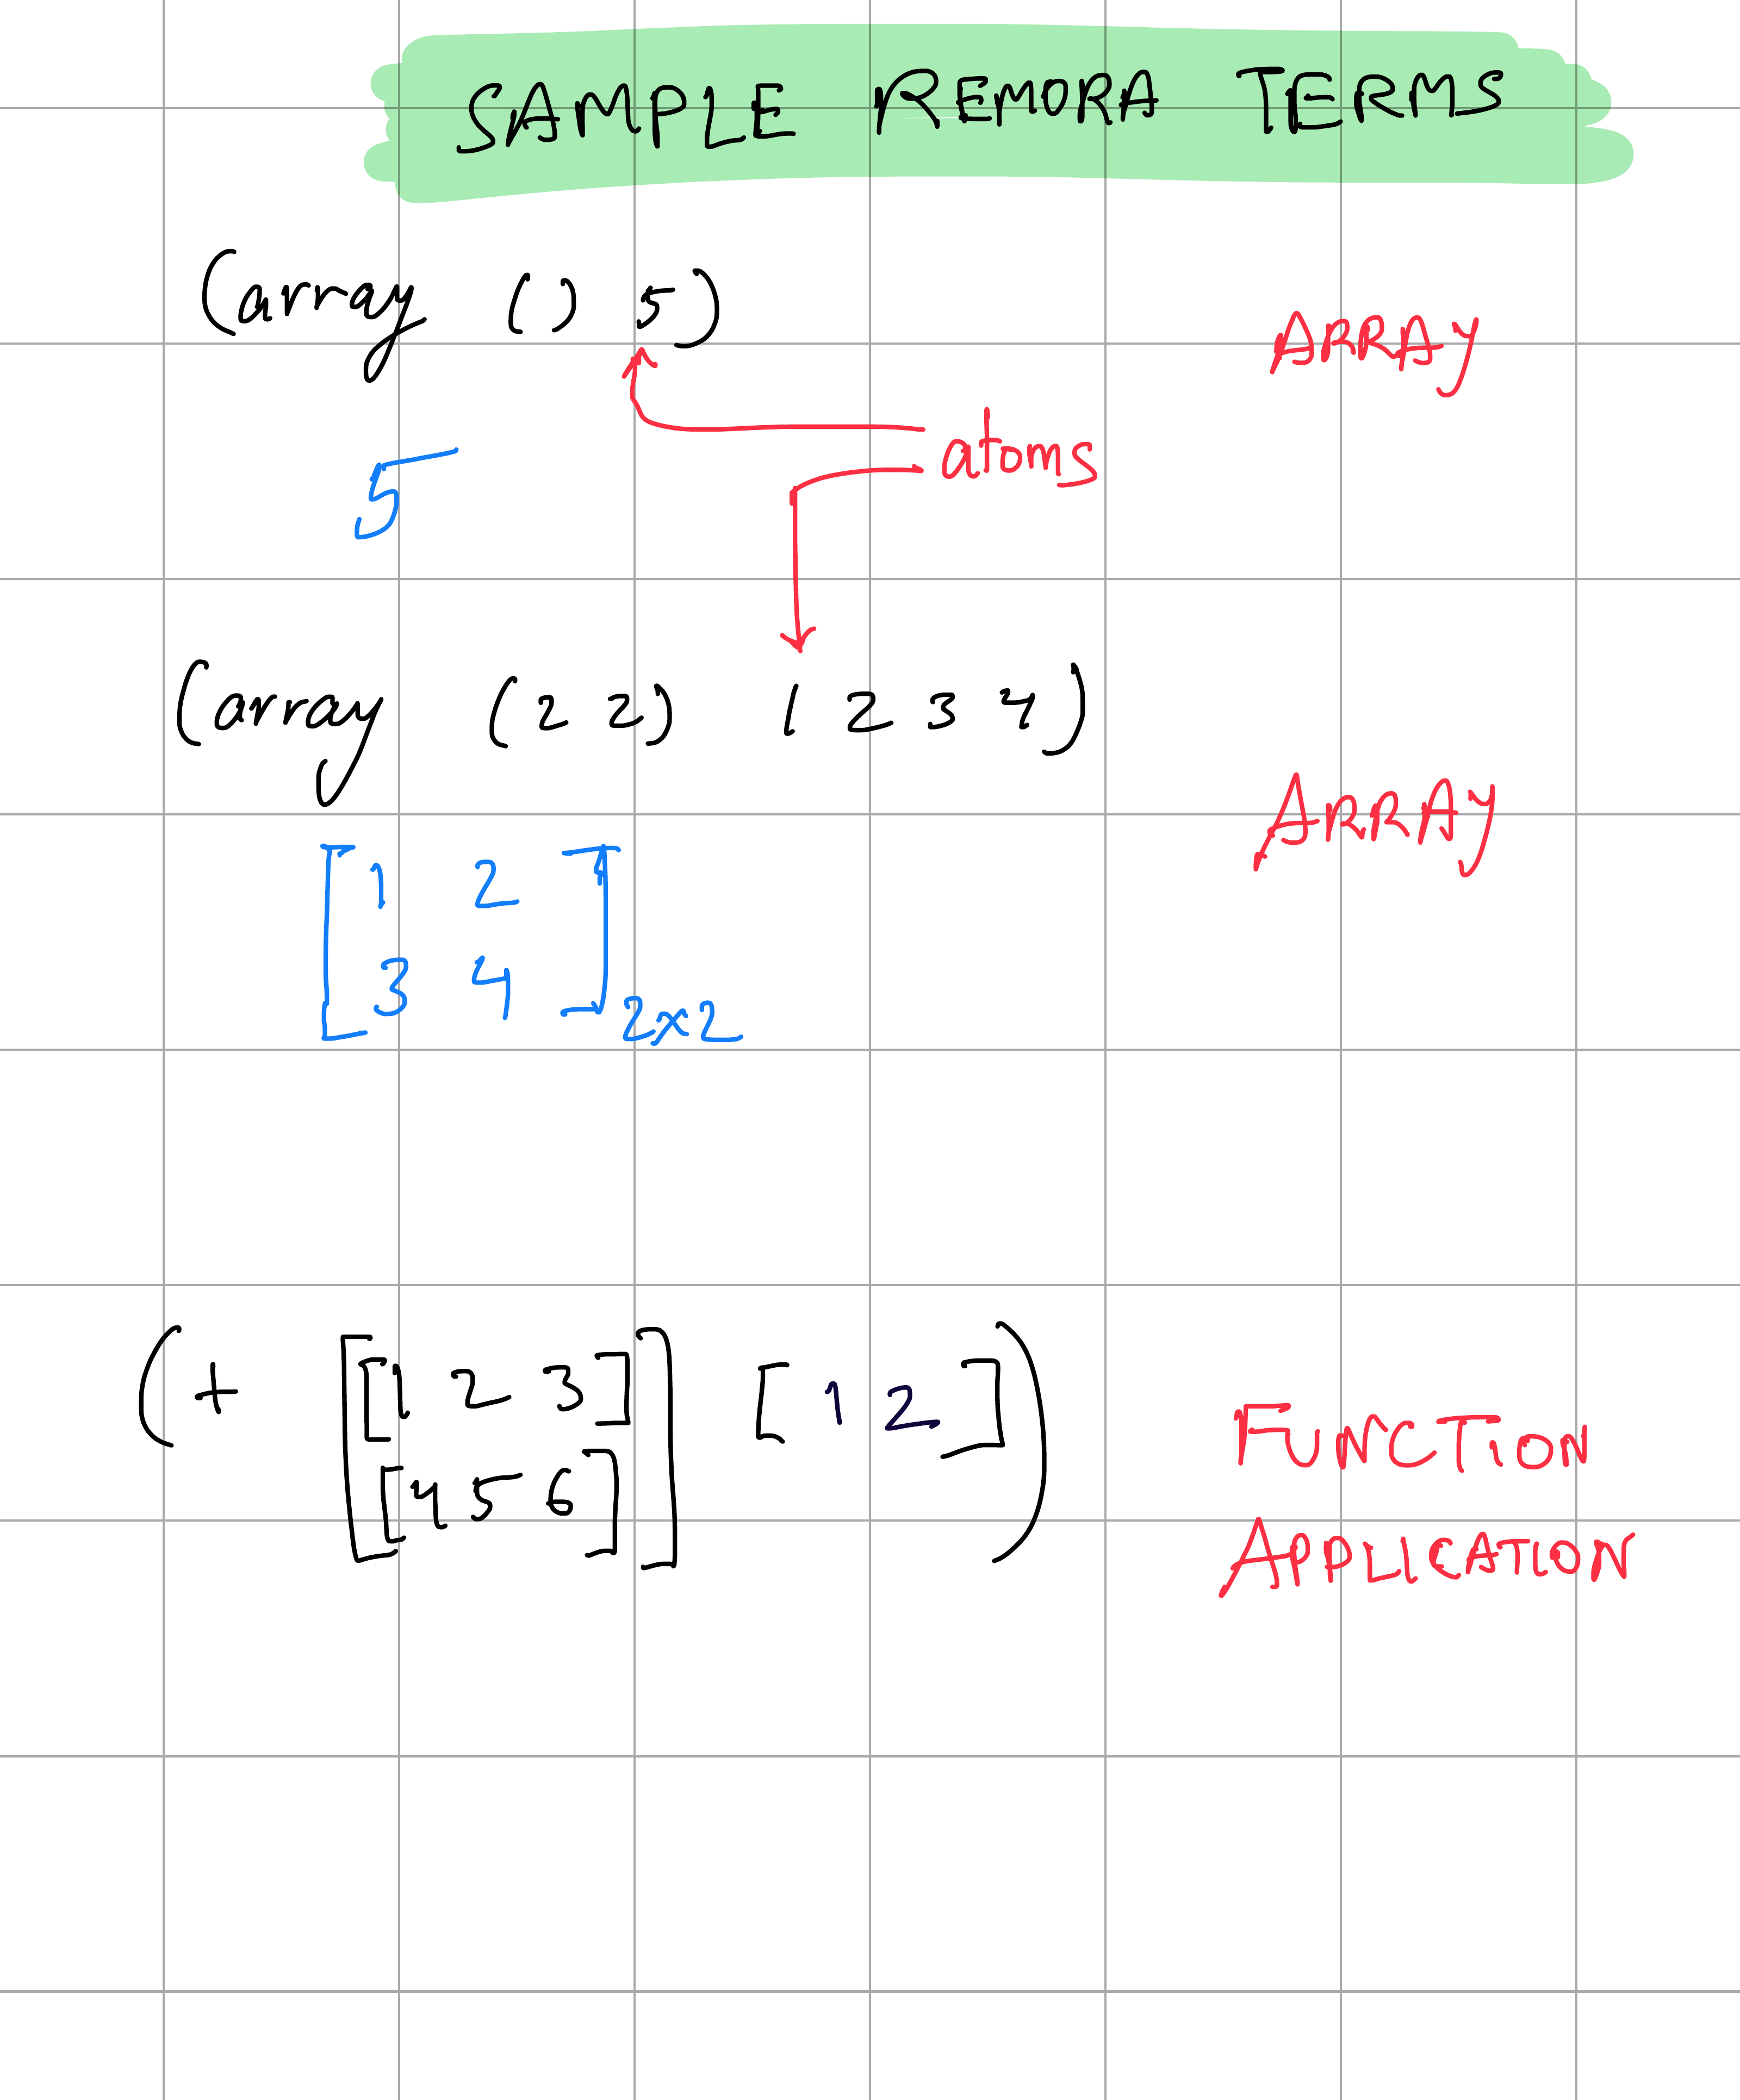 SAMPLE REMORA TERMS
(array () 5)
ARRAY
atoms
5
(array (2 2) 1 2 3 4)
ARRAY
[1 2
3 4]2x2
(+ [[1 2 3] [1 2])
[4 5 6]]
FUNCTION
APPLICATION